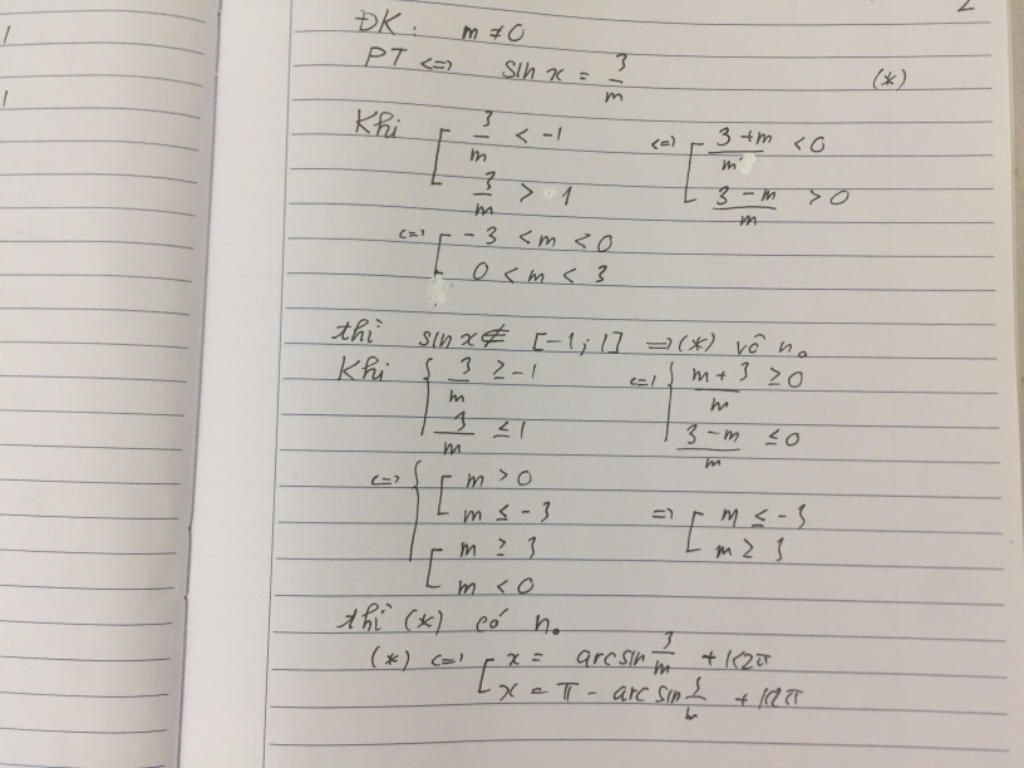 2
ĐK: m ≠ 0
PT <=> sin x = 3/m (*)
Khi [ 3/m < -1 <=> [ (3+m)/m < 0
3/m > 1 (3-m)/m > 0
<=> [ -3 < m < 0
0 < m < 3
thì sin x ∉ [-1; 1] => (*) vô n0
Khi { 3/m ≥ -1 <=> { (m+3)/m ≥ 0
3/m ≤ 1 (3-m)/m ≤ 0
<=> { [ m > 0
m ≤ -3 => [ m ≤ -3
[ m ≥ 3 m ≥ 3
m < 0
thì (*) có n0
(*) <=> [ x = arcsin 3/m + k2π
x = π - arcsin 3/m + k2π